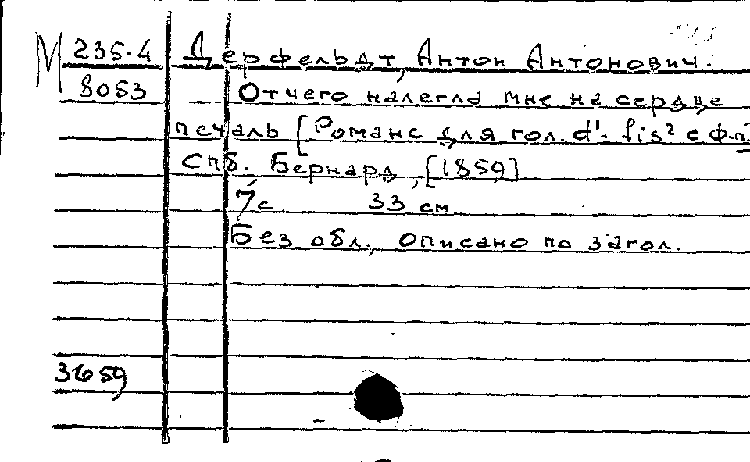 М 235-4 Дерфельдт, Антон Антонович.
8053 Отчего налегла мне на сердце
печаль [Романс для гол. d¹- fis² с ф.-п.]
Спб. Бернард, [1859]
7 с 33 см
Без обл., описано по загол.
3659